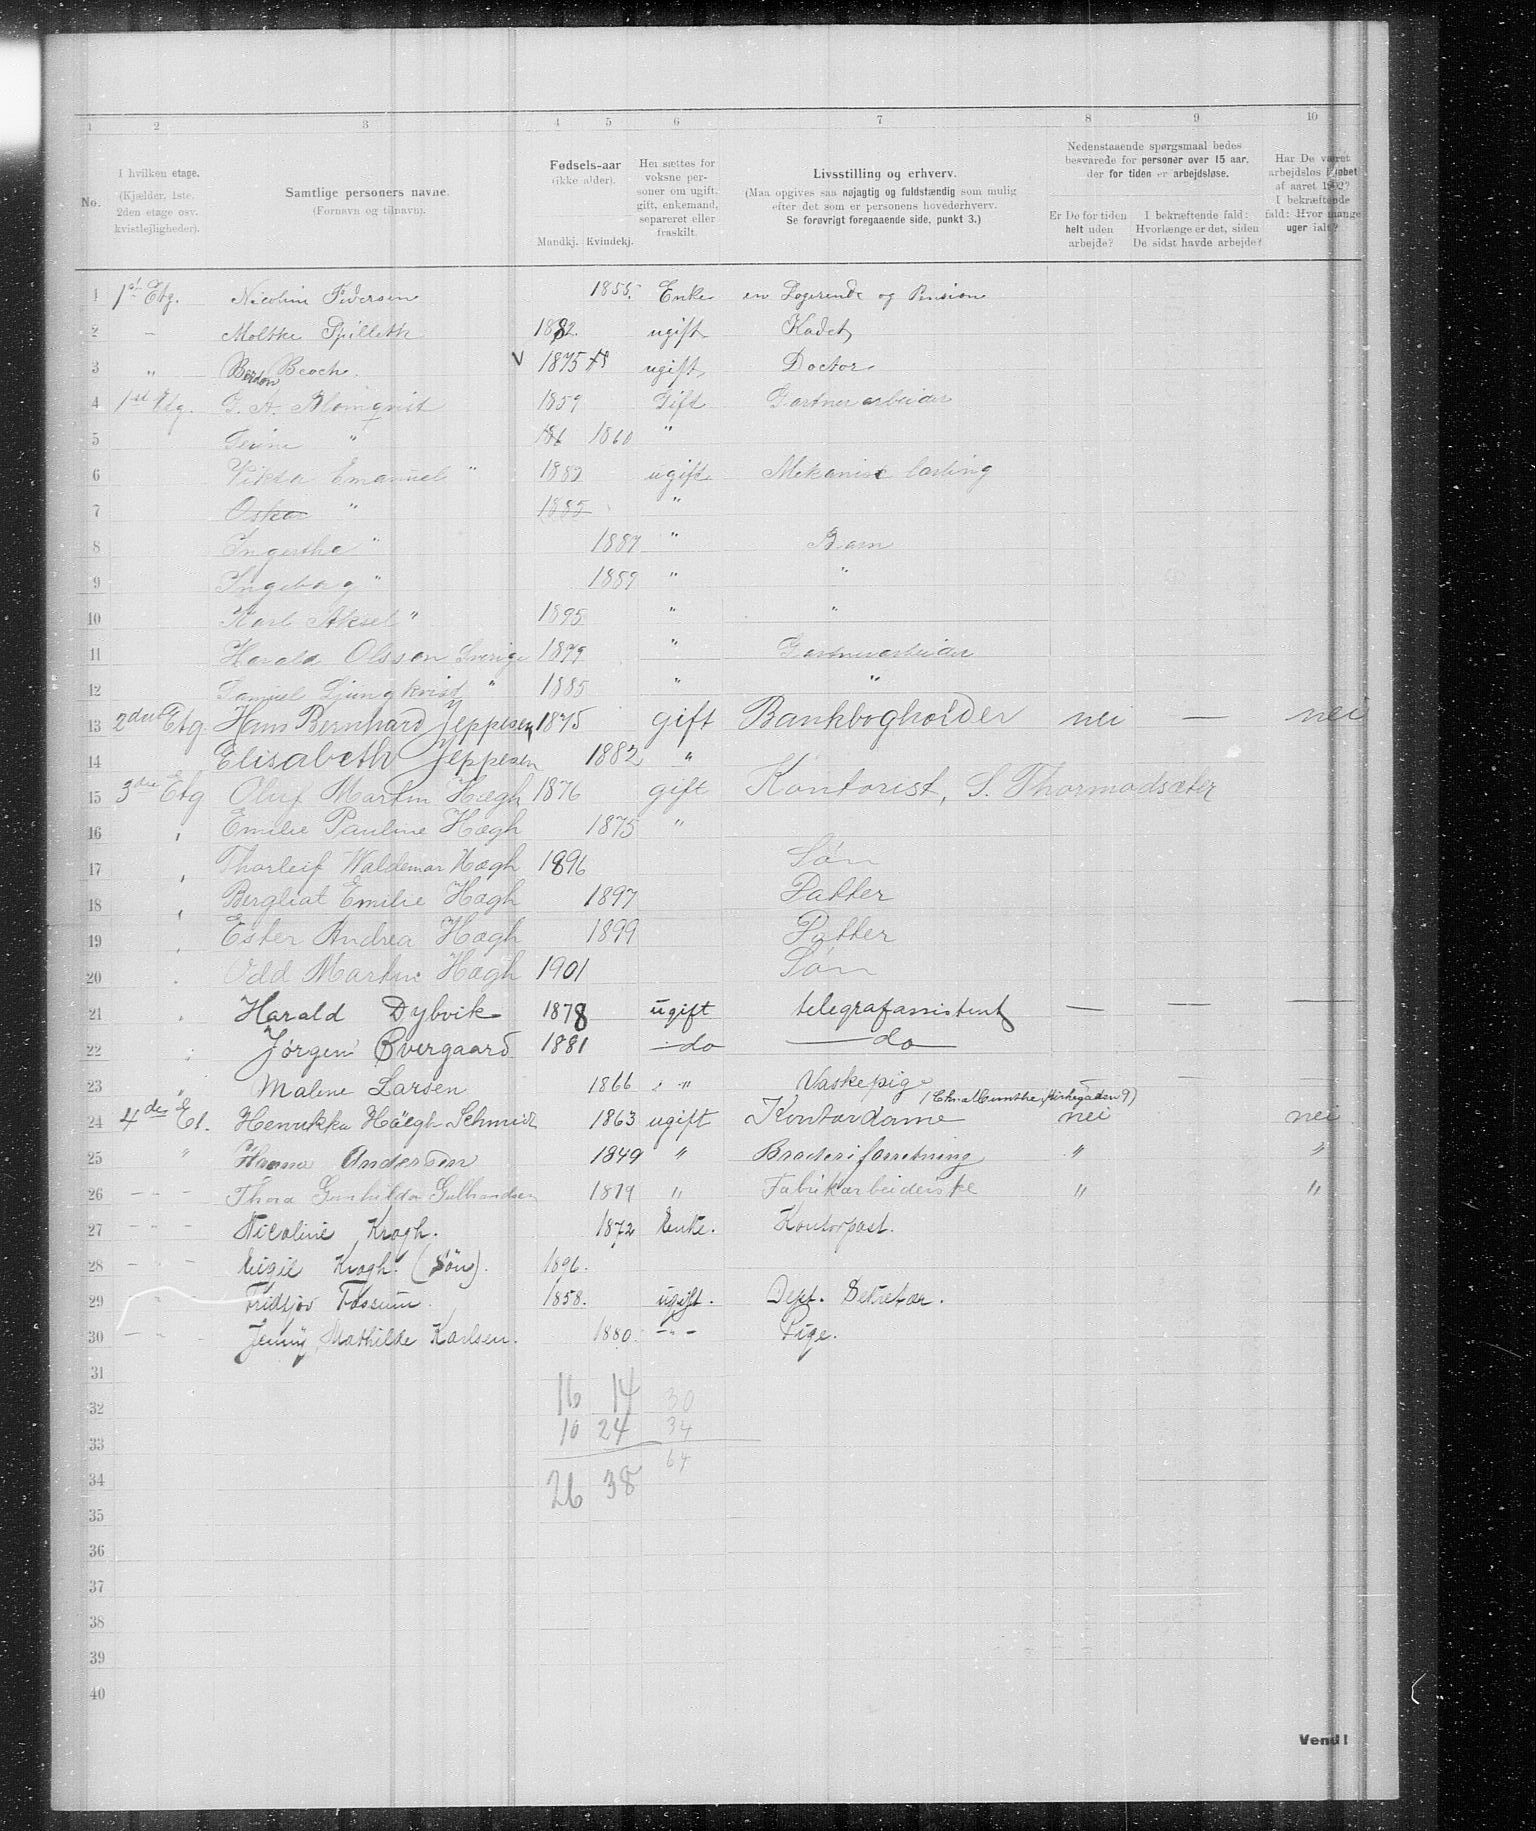 1 2 3 4 5 6 7 8 9 10
No.
I hvilken etage.
(Kjælder, 1ste, 2den etage osv. kvistlejligheder).
Samtlige personers navne.
(Fornavn og tilnavn).
Fødsels-aar
(ikke alder).
Mandkj. Kvindekj.
Her sættes for voksne personer om ugift, gift, enkemand, separeret eller fraskilt.
Livsstilling og erhverv.
(Maa opgives saa nøjagtig og fuldstændig som mulig efter det som er personens hovederhverv.
Se forøvrigt foregaaende side, punkt 3.)
Nedenstaaende spørgsmaal bedes besvarede for personer over 15 aar, der for tiden er arbejdsløse.
Er De for tiden helt uden arbejde?
I bekræftende fald: Hvorlænge er det, siden De sidst havde arbejde?
Har De været arbejdsløs i løbet af aaret 1902? I bekræftende fald: Hvor mange uger ialt?
1 1st Etg. Nicoline Pedersen 1855. Enke en Logerende og Pension
2 – Moltke 1882. ugift Kadet
3 " Broch. V 1875 ugift Doctor
4 1st Etg. G. A. Blomqvist 1859 Gift Gartnerarbeider
5 " 1860 "
6 Viktor Emanuel " 1883 ugift Mekanisk lærling
7 Oskar " 1885 "
8 " 1887 " Barn
9 Ingeborg " 1889 " "
10 Karl Aksel " 1895 " "
11 Harald Olsson Sverige 1879 " Gartnerarbeider
12 Samuel Ljungkvist " 1885 " "
13 2den Etg. Hans Bernhard Jeppesen 1875 gift Bankbogholder nei — nei
14 Elisabeth Jeppesen 1882 "
15 3die Etg Oluf Martin Høegh 1876 gift Kontorist, S. Thormodsæter
16 " Emilie Pauline Høegh 1875 "
17 " Thorleif Waldemar Høegh 1896 Søn
18 " Bergliot Emilie Høegh 1897 Datter
19 " Ester Andrea Høegh 1899 Datter
20 " Odd Martin Høegh 1901 Søn
21 " Harald Dybvik 1878 ugift telegrafassistent — — —
22 " Jørgen Øvergaard 1881 do do
23 " Malene Larsen 1866 " Vaskepige —
24 4de Et. Henrikka Höegh Schmidt 1863 ugift Kontordame (Chr. Munthe, Kirkegaden 9) nei nei
25 " Hanna Andersen 1849 " Broderiforretning " "
26 – " – Thora Gunhilda 1879 " Fabrikarbeiderske " "
27 – " – Nicoline Krogh. 1872 Enke. Kontorpost.
28 – " – Krogh. (Søn). 1896.
29 " – Fridtjov Fossum. 1858. ugift. Dept. Sekretær.
30 – " – Jenny Mathilde Karlsen. 1880. – " – Pige.
31
32 16 14 30
33 10 24 34
34 26 38 64
35
36
37
38
39
40
Vend!